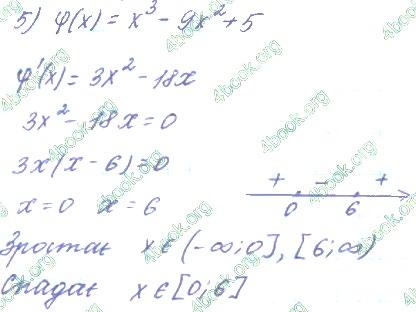 5) φ(x) = x³ - 9x² + 5
φ'(x) = 3x² - 18x
3x² - 18x = 0
3x(x - 6) = 0
x = 0 x = 6
+ - +
0 6
Зростає x ∈ (-∞; 0], [6; ∞)
Спадає x ∈ [0; 6]